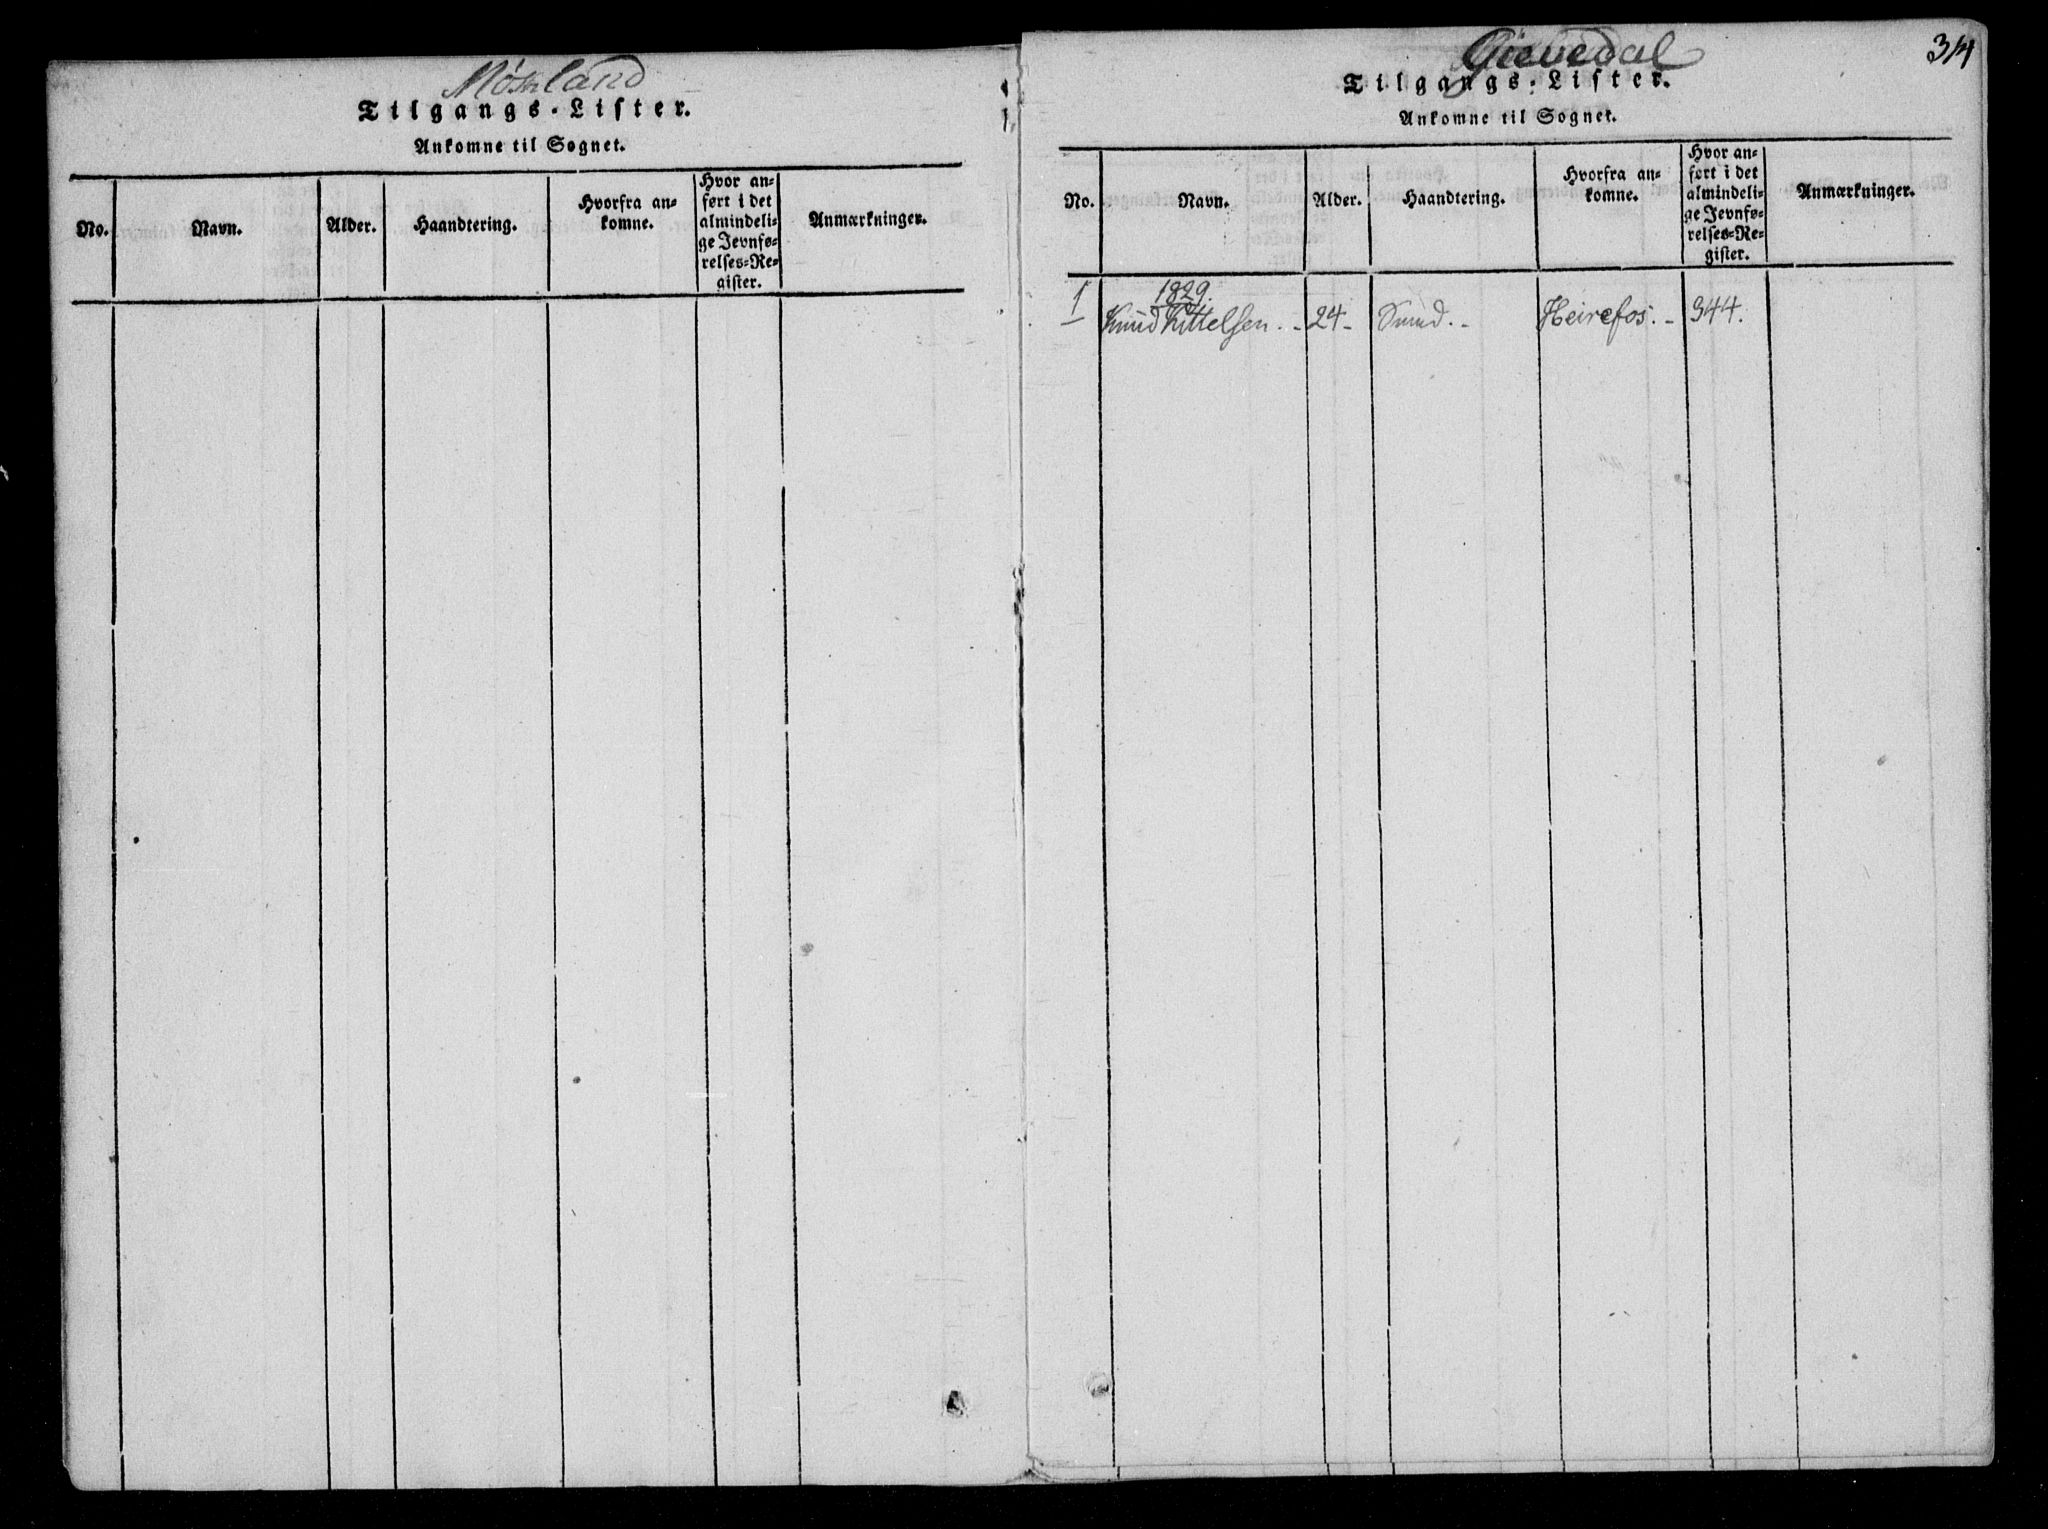 Mösland
Tilgangs-Lister.
Ankomne til Sognet.
No.
Navn.
Alder.
Haandtering.
Hvorfra an-
komne.
Hvor an-
ført i det
almindeli-
ge Jevnfø-
relses-Re-
gister.
Anmærkninger.
Gievedal
314
Tilgangs-Lister.
Ankomne til Sognet.
No.
Navn.
Alder.
Haandtering.
Hvorfra an-
komne.
Hvor an-
ført i det
almindeli-
ge Jevnfø-
relses-Re-
gister.
Anmærkninger.
1829.
1 Knud Kittelsen. - 24 - Smed. - Heirefos. - 344.